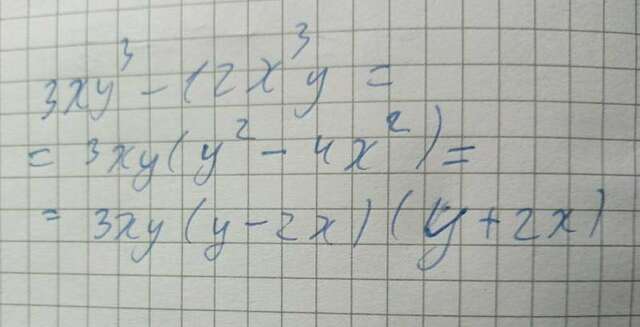 3xy³ - 12x³y =
= 3xy(y² - 4x²) =
= 3xy(y - 2x)(y + 2x)